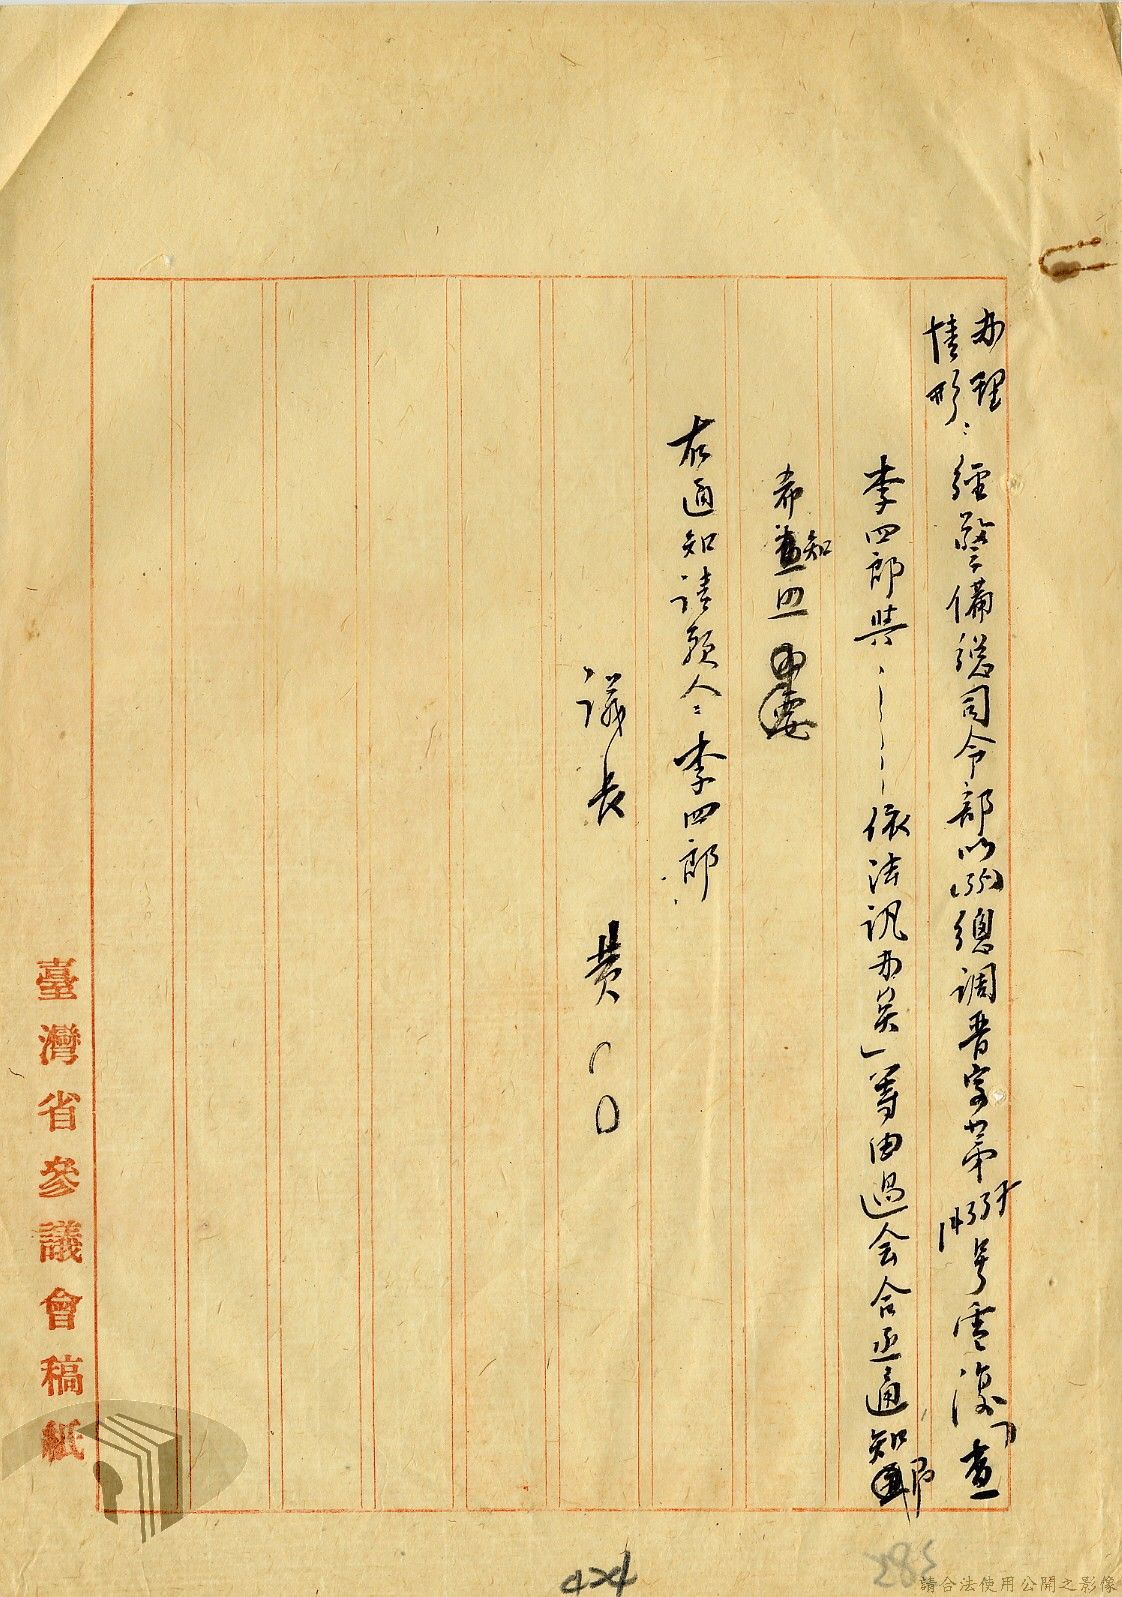 办理
情形：經警備總司令部以(35)總調晋字第号電復「查
李四郎與、————依法訊办矣」等由過会合亟通知即
希知照
右通知請願人：李四郎
議長 黄〇〇
臺灣省參議會稿紙
424
285
請合法使用公開之影像